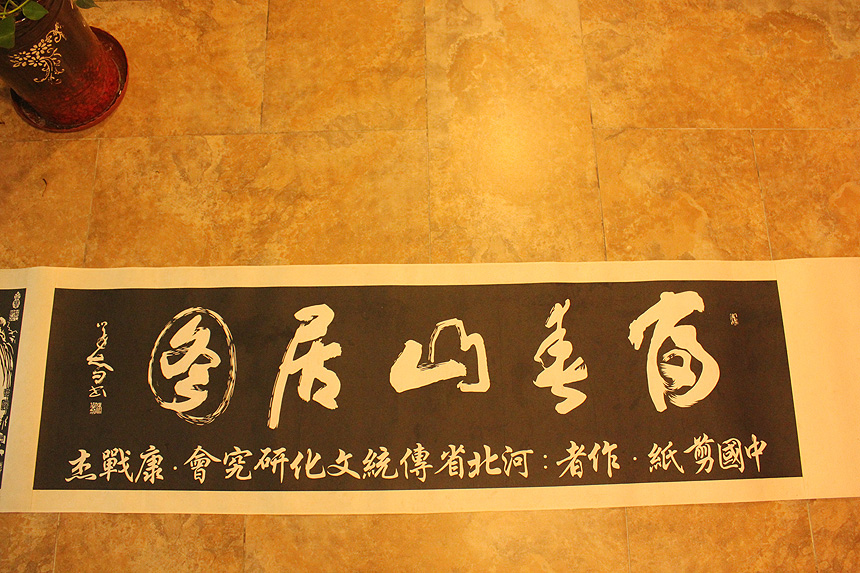 富春山居图
中國剪紙·作者：河北省傳統文化研究會·康戰杰